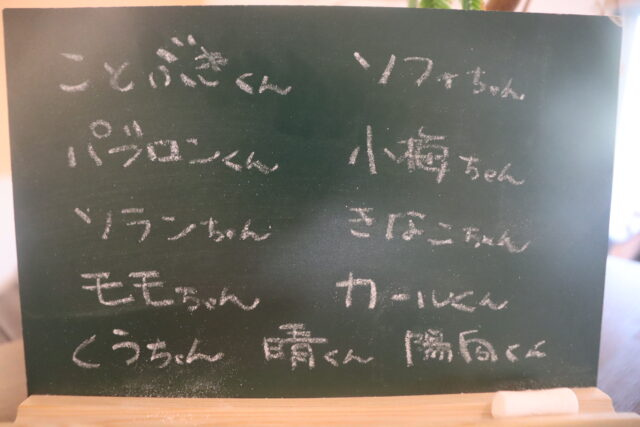 ことぶきくん ソフィちゃん
パブロンくん 小梅ちゃん
ソランちゃん きなこちゃん
モモちゃん カールくん
くうちゃん 晴くん 陽向くん